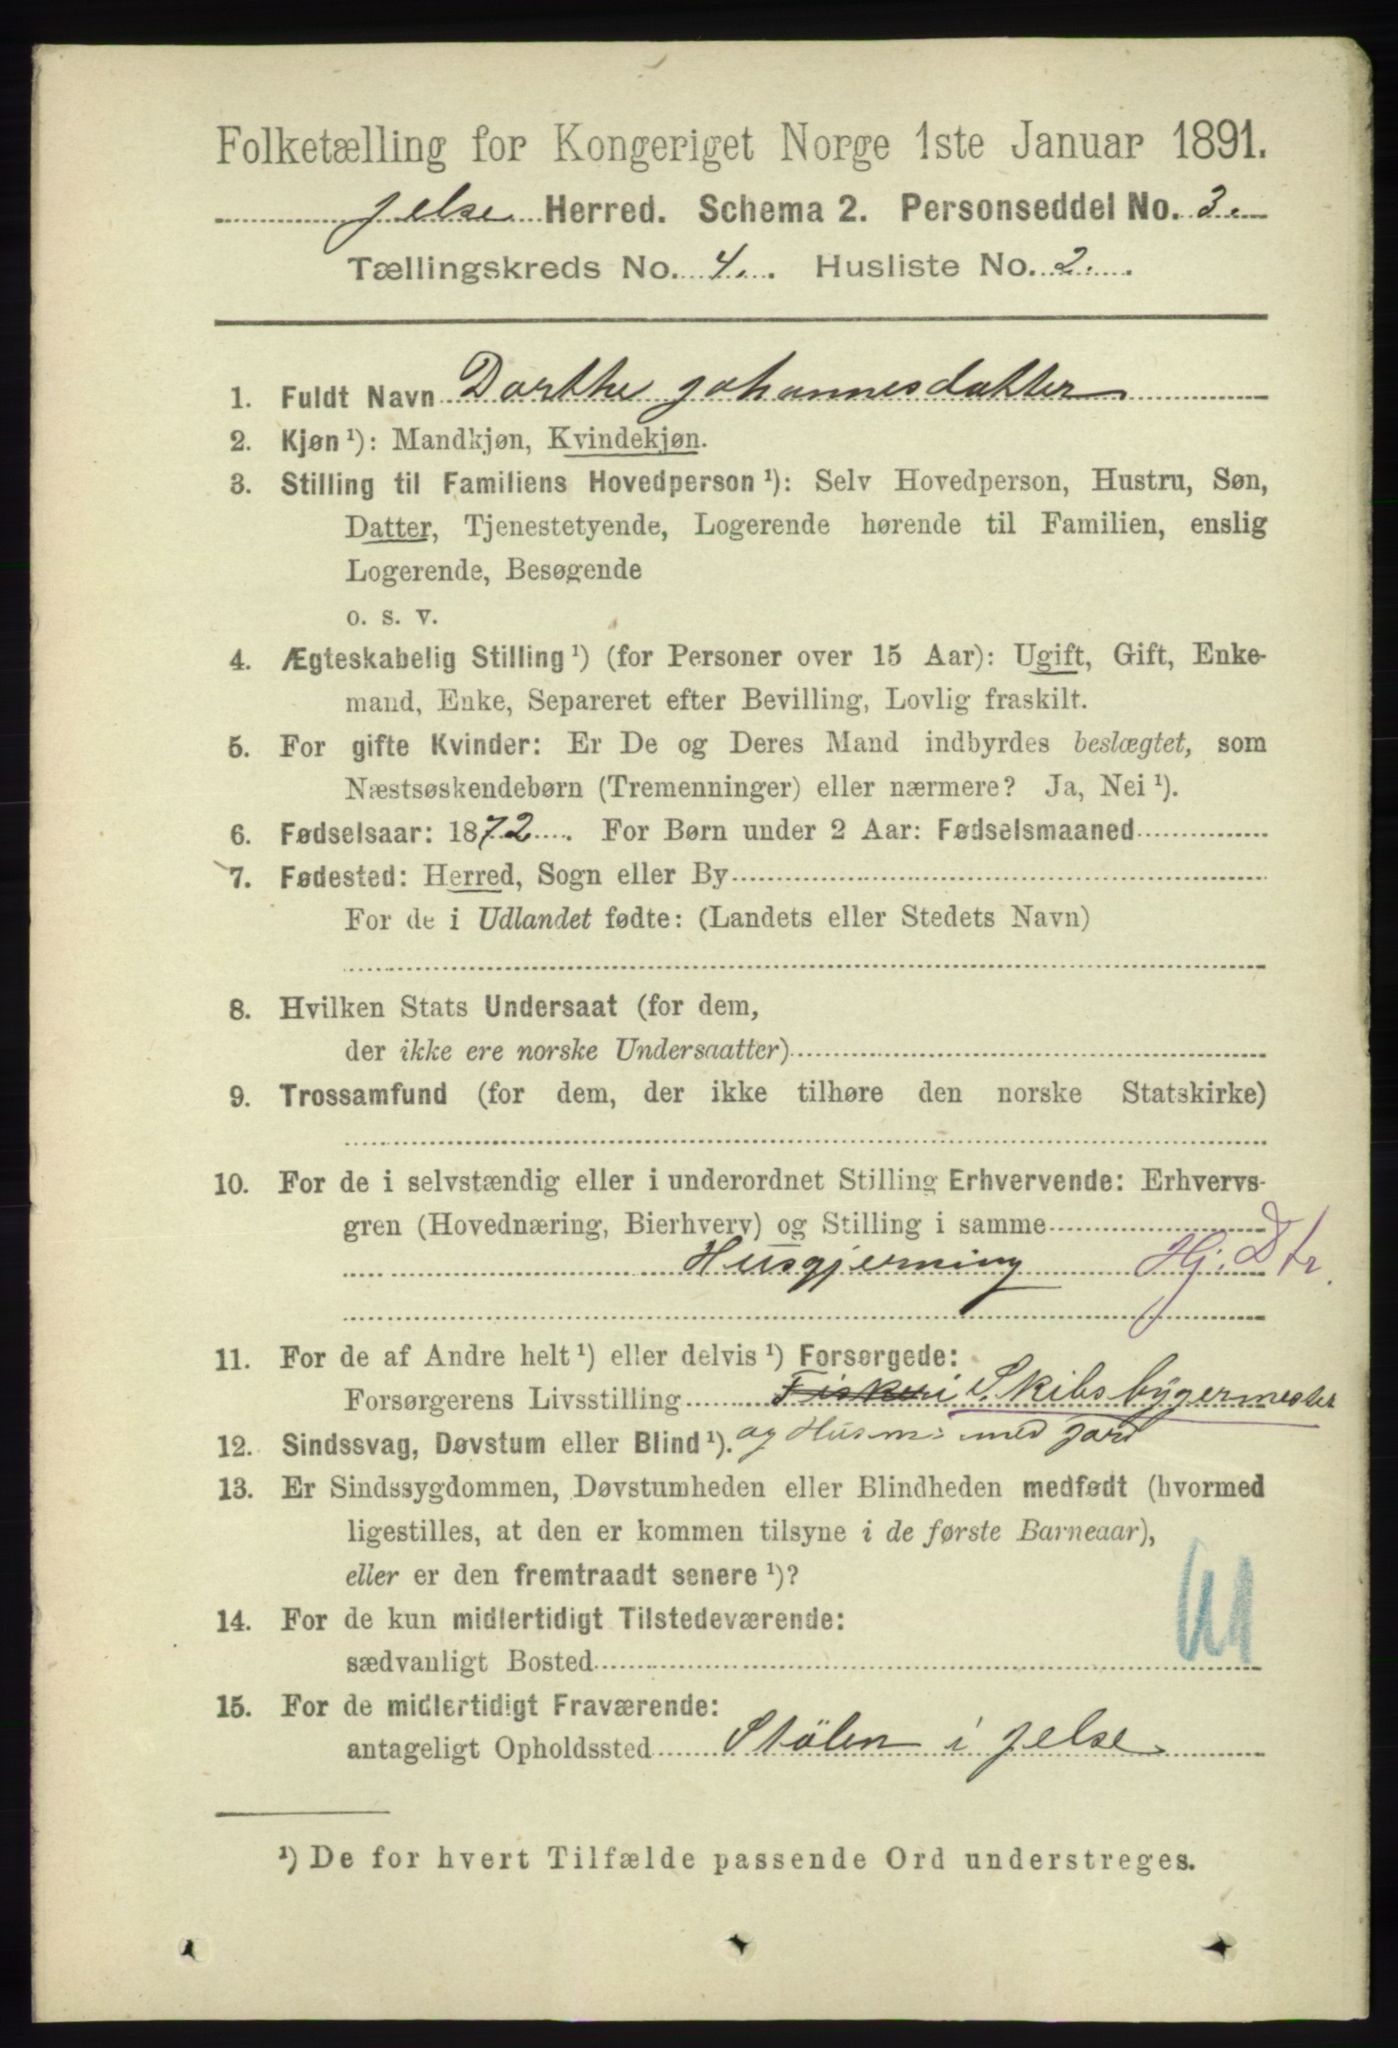 Folketælling for Kongeriget Norge 1ste Januar 1891.
Jelse Herred. Schema 2. Personseddel No. 3.
Tællingskreds No. 4. Husliste No. 2.
1. Fuldt Navn Dorthe Johannesdatter
2. Kjøn ¹): Mandkjøn, Kvindekjøn.
3. Stilling til Familiens Hovedperson ¹): Selv Hovedperson, Hustru, Søn,
Datter, Tjenestetyende, Logerende hørende til Familien, enslig
Logerende, Besøgende
o. s. v.
4. Ægteskabelig Stilling ¹) (for Personer over 15 Aar): Ugift, Gift, Enke-
mand, Enke, Separeret efter Bevilling, Lovlig fraskilt.
5. For gifte Kvinder: Er De og Deres Mand indbyrdes beslægtet, som
Næstsøskendebørn (Tremenninger) eller nærmere? Ja, Nei ¹).
6. Fødselsaar: 1872. For Børn under 2 Aar: Fødselsmaaned
7. Fødested: Herred, Sogn eller By
For de i Udlandet fødte: (Landets eller Stedets Navn)
8. Hvilken Stats Undersaat (for dem,
der ikke ere norske Undersaatter)
9. Trossamfund (for dem, der ikke tilhøre den norske Statskirke)
10. For de i selvstændig eller i underordnet Stilling Erhvervende: Erhvervs-
gren (Hovednæring, Bierhverv) og Stilling i samme
Husgjerning Hj. Dtr.
11. For de af Andre helt ¹) eller delvis ¹) Forsørgede:
Forsørgerens Livsstilling Fiskeri Skibsbygermester
12. Sindssvag, Døvstum eller Blind ¹). og Husm. med Jord
13. Er Sindssygdommen, Døvstumheden eller Blindheden medfødt (hvormed
ligestilles, at den er kommen tilsyne i de første Barneaar),
eller er den fremtraadt senere ¹)?
14. For de kun midlertidigt Tilstedeværende:
sædvanligt Bosted
15. For de midlertidigt Fraværende:
antageligt Opholdssted Stölen i Jelse
¹) De for hvert Tilfælde passende Ord understreges.